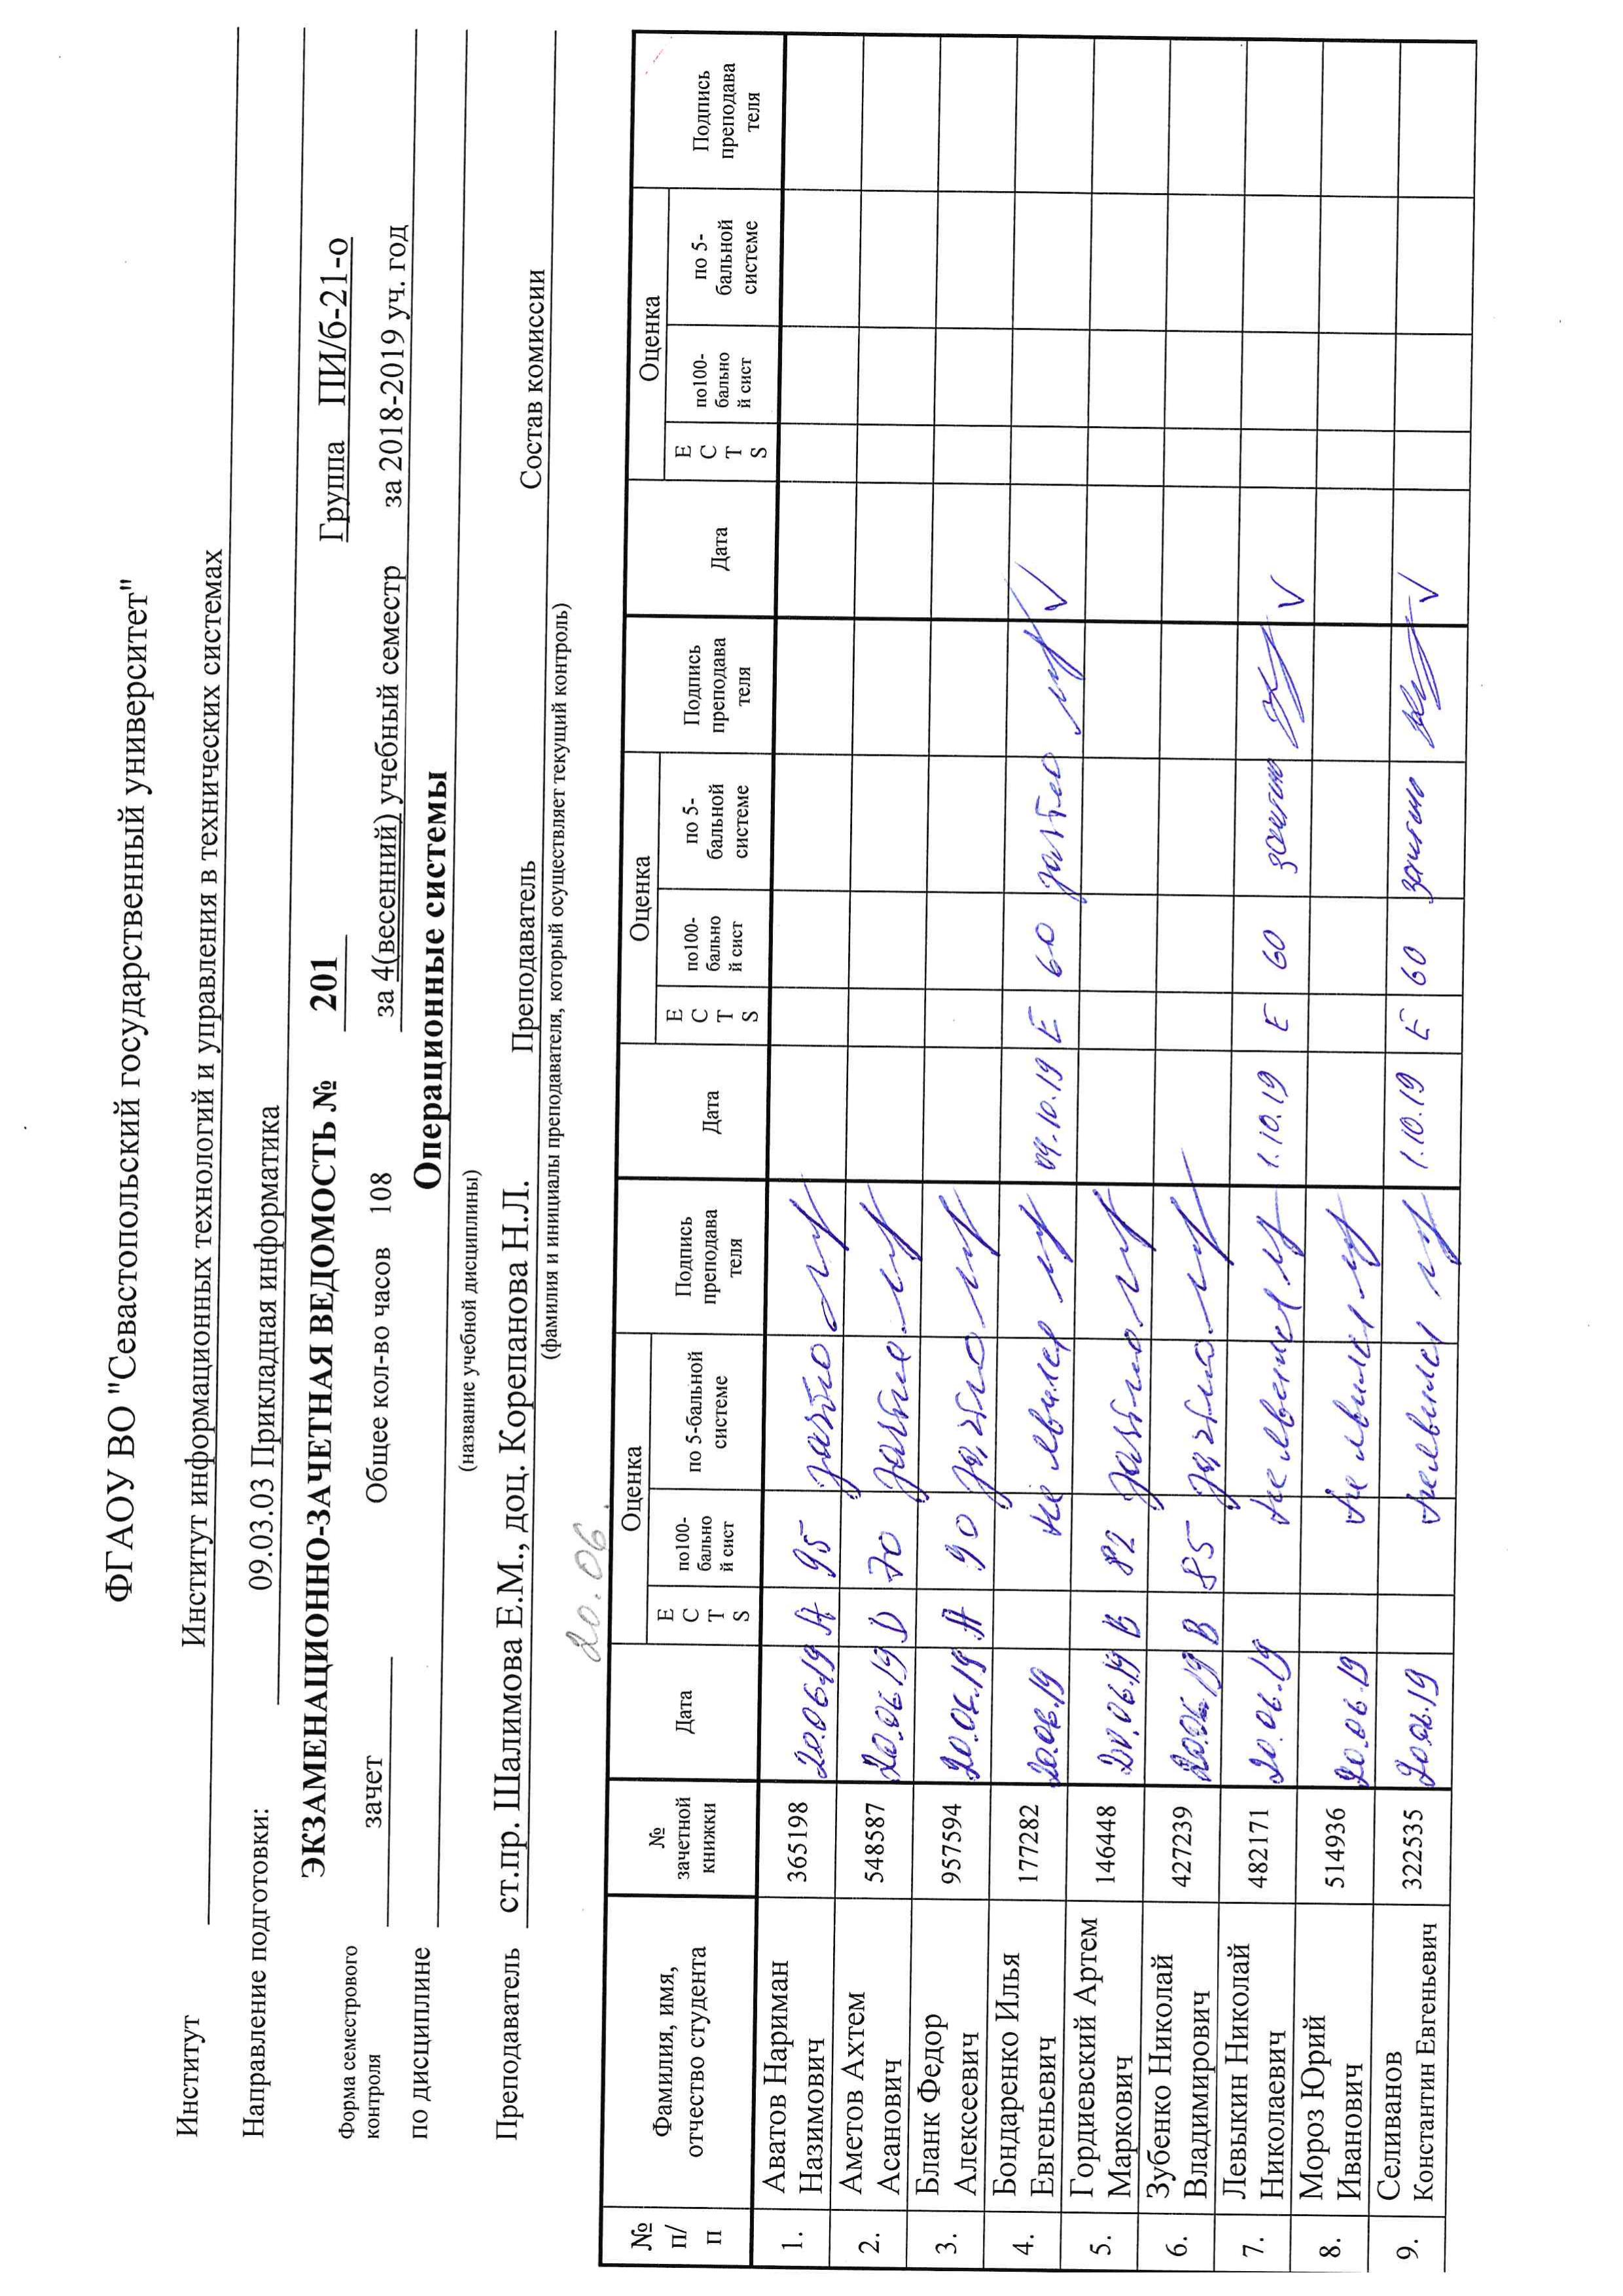 ФГАОУ ВО "Севастопольский государственный университет"
Институт Институт информационных технологий и управления в технических системах
Направление подготовки: 09.03.03 Прикладная информатика
ЭКЗАМЕНАЦИОННО-ЗАЧЕТНАЯ ВЕДОМОСТЬ № 201 Группа ПИ/б-21-о
Форма семестрового
контроля зачет Общее кол-во часов 108 за 4(весенний) учебный семестр за 2018-2019 уч. год
по дисциплине Операционные системы
(название учебной дисциплины)
Преподаватель ст.пр. Шалимова Е.М., доц. Корепанова Н.Л. Преподаватель Состав комиссии
(фамилия и инициалы преподавателя, который осуществляет текущий контроль)
20.06.
№ п/п Фамилия, имя, отчество студента № зачетной книжки Дата Оценка ECTS по100-бально й сист по 5-бальной системе Подпись преподава теля Дата Оценка ECTS по100-бально й сист по 5-бальной системе Подпись преподава теля Дата Оценка ECTS по100-бально й сист по 5-бальной системе Подпись преподава теля
1. Аватов Нариман Назимович 365198 20.06.19 A 95 зачтено
2. Аметов Ахтем Асанович 548587 20.06.19 D 70 зачтено
3. Бланк Федор Алексеевич 957594 20.06.19 A 90 зачтено
4. Бондаренко Илья Евгеньевич 177282 20.06.19 не явился 09.10.19 E 60 зачтено ✓
5. Гордиевский Артем Маркович 146448 20.06.19 B 82 зачтено
6. Зубенко Николай Владимирович 427239 20.06.19 B 85 зачтено
7. Левыкин Николай Николаевич 482171 20.06.19 не явился 1.10.19 E 60 зачтено ✓
8. Мороз Юрий Иванович 514936 20.06.19 не явился
9. Селиванов Константин Евгеньевич 322535 20.06.19 не явился 1.10.19 E 60 зачтено ✓